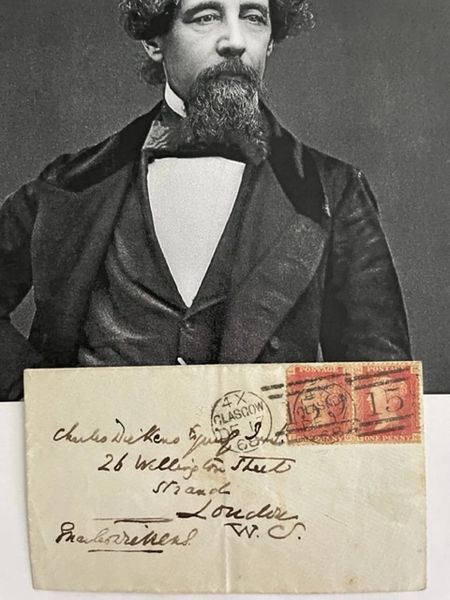 POSTAGE POSTAGE
4X
GLASGOW
DE 17
68
15
ONE PENNY ONE PENNY
Charles Dickens Esqre Junr
26 Wellington Street
Strand
London
W. C.
Charles Dickens